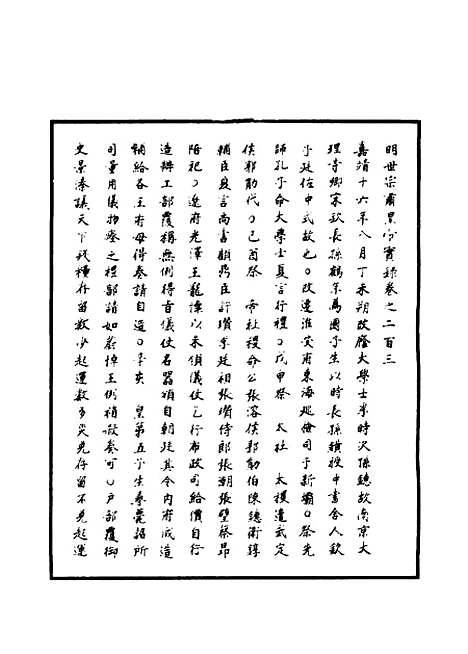 明世宗肅皇帝實錄卷之二百三
嘉靖十六年八月丁未朔改廕大學士李時次孫總故南京大
理寺卿宋欽長孫鶴年爲國子生以時長孫績授中書舍人欽
子延佐中式故也○改建淮安府東海巡檢司于新壩○祭先
師孔子命大學士夏言行禮○戊申祭 太社 太稷遣武定
侯郭勛代○己酉祭 帝社稷命公張溶侯郭勛伯陳鏸衛錞
輔臣夏言尚書顧鼎臣許瓚李廷相張瓚侍郎張潮張璧蔡昂
陪祀○遼府光澤王寵瀼以未領儀仗乞行布政司給價自行
造辦工部覆稱無例得旨儀仗名器須自朝廷其令內府成造
頒給各王府毋得奏請自造○辛亥 皇第五子生希薨詔所
司量用儀物瘞之禮部請如蔚悼王例稍殺奏可○戶部覆御
史景溱議天下錢糧存留數少起運數多災免存留不免起運